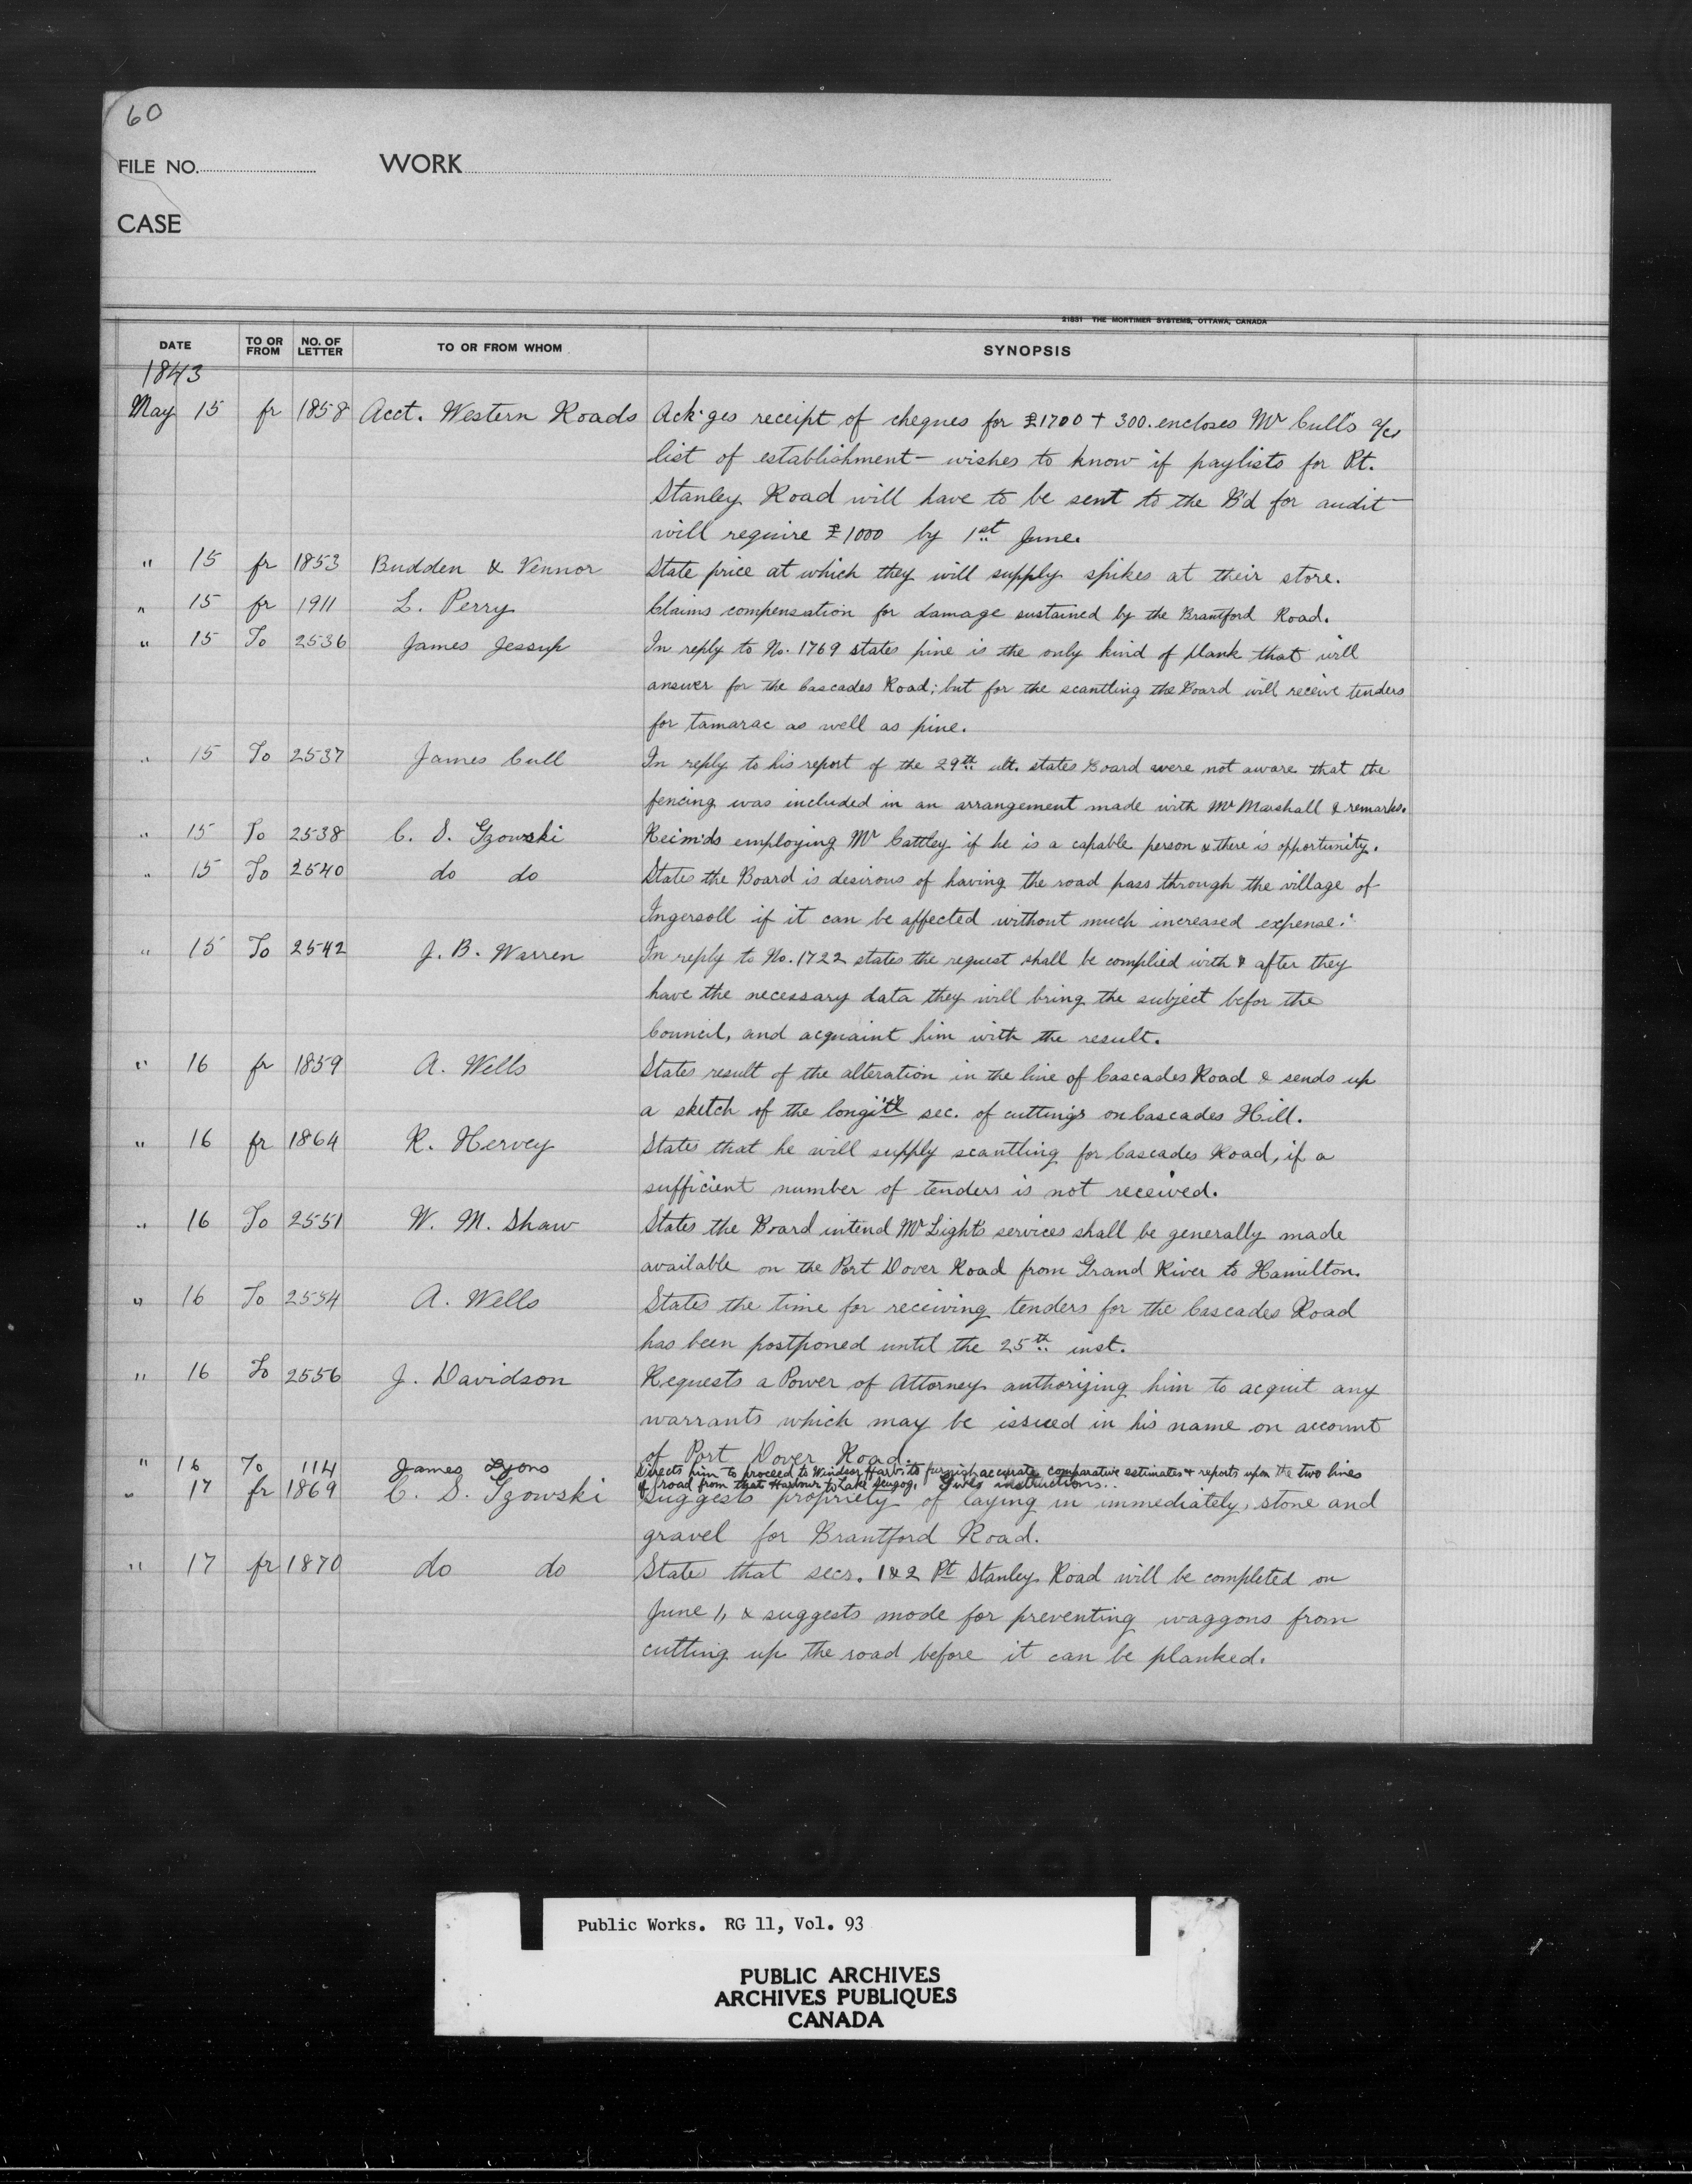 60
FILE NO. WORK
CASE
21831 THE MORTIMER SYSTEMS, OTTAWA, CANADA
DATE TO OR FROM NO. OF LETTER TO OR FROM WHOM SYNOPSIS
1843
May 15 fr 1858 Acct. Western Roads Ack'ges receipt of cheques for £1700 + 300. encloses Mr Cull's a/cs
list of establishment — wishes to know if paylists for Pt.
Stanley Road will have to be sent to the B'd for audit —
will require £1000 by 1st June.
" 15 fr 1853 Budden & Vennor State price at which they will supply spikes at their store.
" 15 fr 1911 L. Perry Claims compensation for damage sustained by the Brantford Road.
" 15 To 2536 James Jessup In reply to No. 1769 states pine is the only kind of plank that will
answer for the Cascades Road; but for the scantling the Board will receive tenders
for tamarac as well as pine.
" 15 To 2537 James Cull In reply to his report of the 29th ult. states Board were not aware that the
fencing was included in an arrangement made with Mr Marshall & remarks.
" 15 To 2538 C. S. Gzowski employing Mr Cattley if he is a capable person & there is opportunity.
" 15 To 2540 do do States the Board is desirous of having the road pass through the village of
Ingersoll if it can be affected without much increased expense.
" 15 To 2542 J. B. Warren In reply to No. 1722 states the request shall be complied with & after they
have the necessary data they will bring the subject befor the
Council, and acquaint him with the result.
" 16 fr 1859 A. Wells States result of the alteration in the line of Cascades Road & sends up
a sketch of the longi'tl sec. of cuttings on Cascades Hill.
" 16 fr 1864 R. Hervey States that he will supply scantling for Cascades Road, if a
sufficient number of tenders is not received.
" 16 To 2551 W. M. Shaw States the Board intend Mr Light's services shall be generally made
available on the Port Dover Road from Grand River to Hamilton.
" 16 To 2554 A. Wells States the time for receiving tenders for the Cascades Road
has been postponed until the 25th inst.
" 16 To 2556 J. Davidson Requests a Power of Attorney authorizing him to acquit any
warrants which may be issued in his name on account
of Port Dover Road.
" 16 To 114 James Lyons Directs him to proceed to Windsor Harb. to furnish accurate comparative estimates & reports upon the two lines
of road from that Harbour to Lake Scugog. Gives instructions.
" 17 fr 1869 C. S. Gzowski Suggests propriety of laying in immediately, stone and
gravel for Brantford Road.
" 17 fr 1870 do do State that secs. 1 & 2 Pt Stanley Road will be completed on
June 1, & suggests mode for preventing waggons from
cutting up the road before it can be planked.
Public Works. RG 11, Vol. 93
PUBLIC ARCHIVES
ARCHIVES PUBLIQUES
CANADA